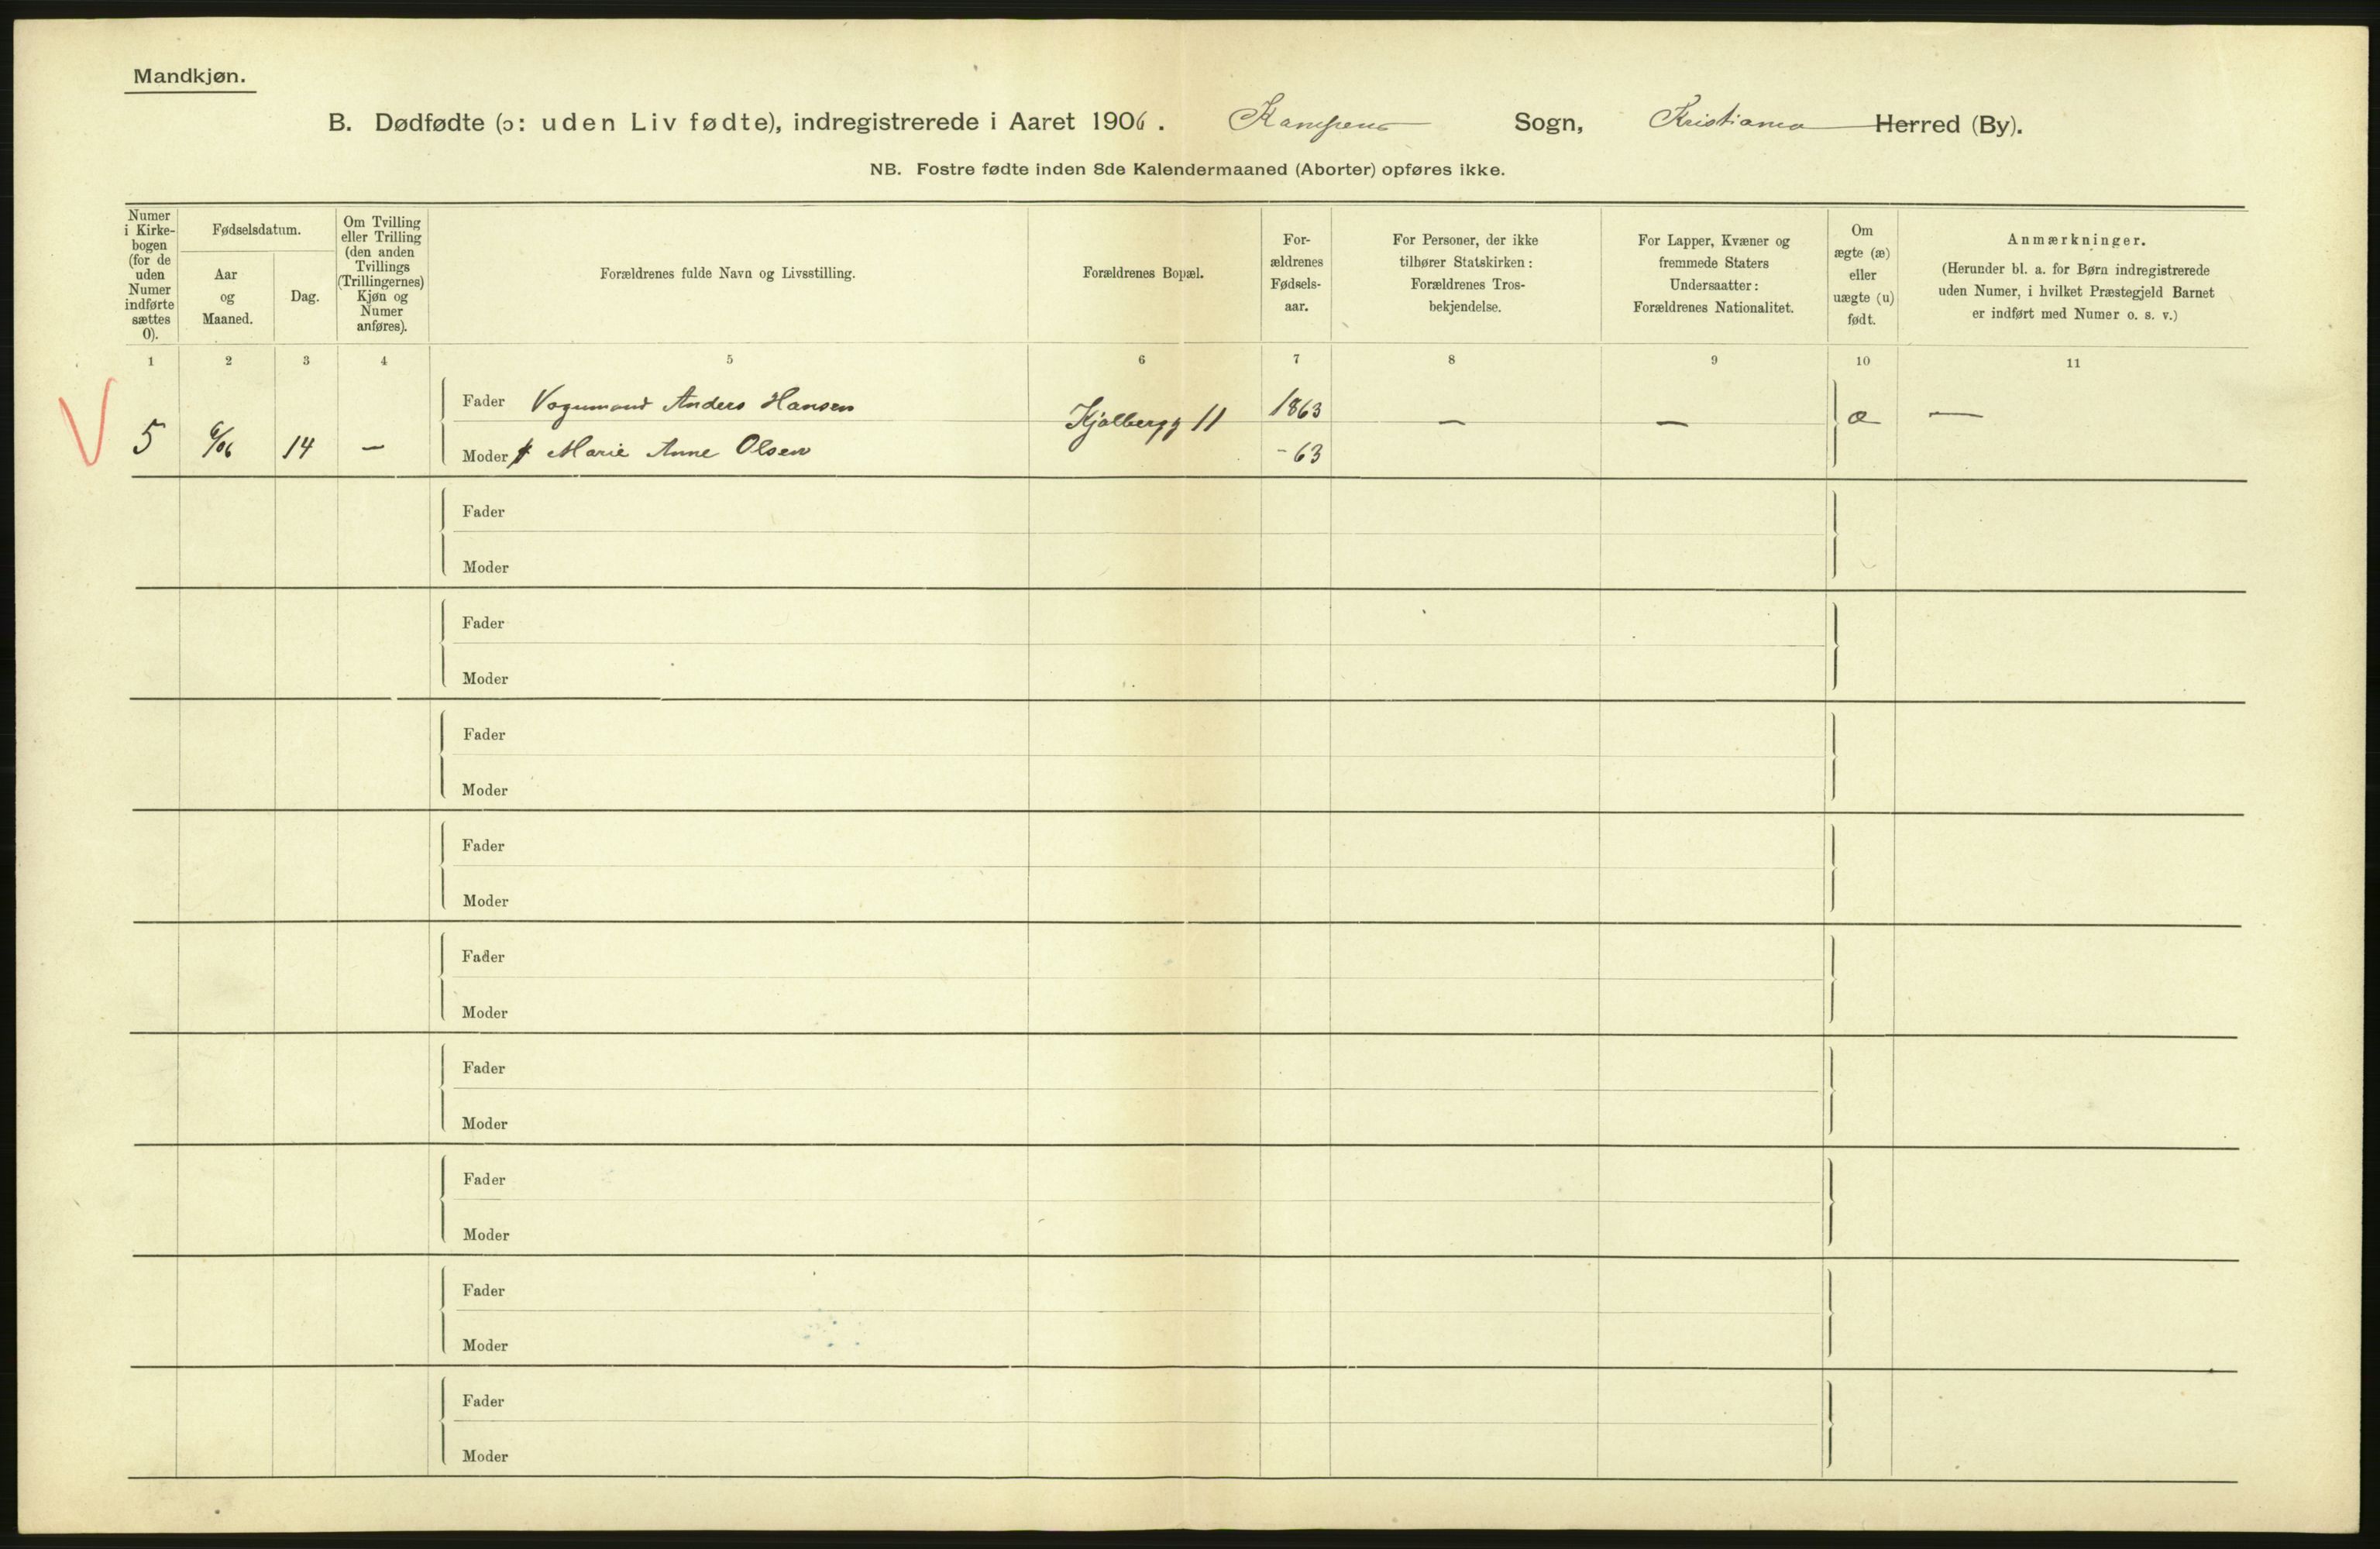 Mandkjøn.
B. Dødfødte (ɔ: uden Liv fødte), indregistrerede i Aaret 1906. Kampens Sogn, Kristiania Herred (By).
NB. Fostre fødte inden 8de Kalendermaaned (Aborter) opføres ikke.
Numer
i Kirke-
bogen
(for de
uden
Numer
indførte
sættes
0).
Fødselsdatum.
Aar
og
Maaned.
Dag.
Om Tvilling
eller Trilling
(den anden
Tvillings
(Trillingernes)
Kjøn og
Numer
anføres).
Forældrenes fulde Navn og Livsstilling.
Forældrenes Bopæl.
For-
ældrenes
Fødsels-
aar.
For Personer, der ikke
tilhører Statskirken:
Forældrenes Tros-
bekjendelse.
For Lapper, Kvæner og
fremmede Staters
Undersaatter:
Forældrenes Nationalitet.
Om
ægte (æ)
eller
uægte (u)
født.
Anmærkninger.
(Herunder bl. a. for Børn indregistrerede
uden Numer, i hvilket Præstegjeld Barnet
er indført med Numer o. s. v.)
1 2 3 4 5 6 7 8 9 10 11
Fader Vognmand Anders Hansen 1863
5 6/06 14 — Kjølbergg 11 — — æ —
Moder Marie Anne Olsen - 63
Fader
Moder
Fader
Moder
Fader
Moder
Fader
Moder
Fader
Moder
Fader
Moder
Fader
Moder
Fader
Moder
Fader
Moder